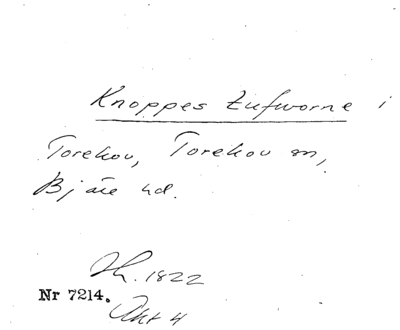 Knoppes tufworne i
Torekov, Torekov sn,
Bjäre hd.
Jh. 1822
Nr 7214.
Akt 4